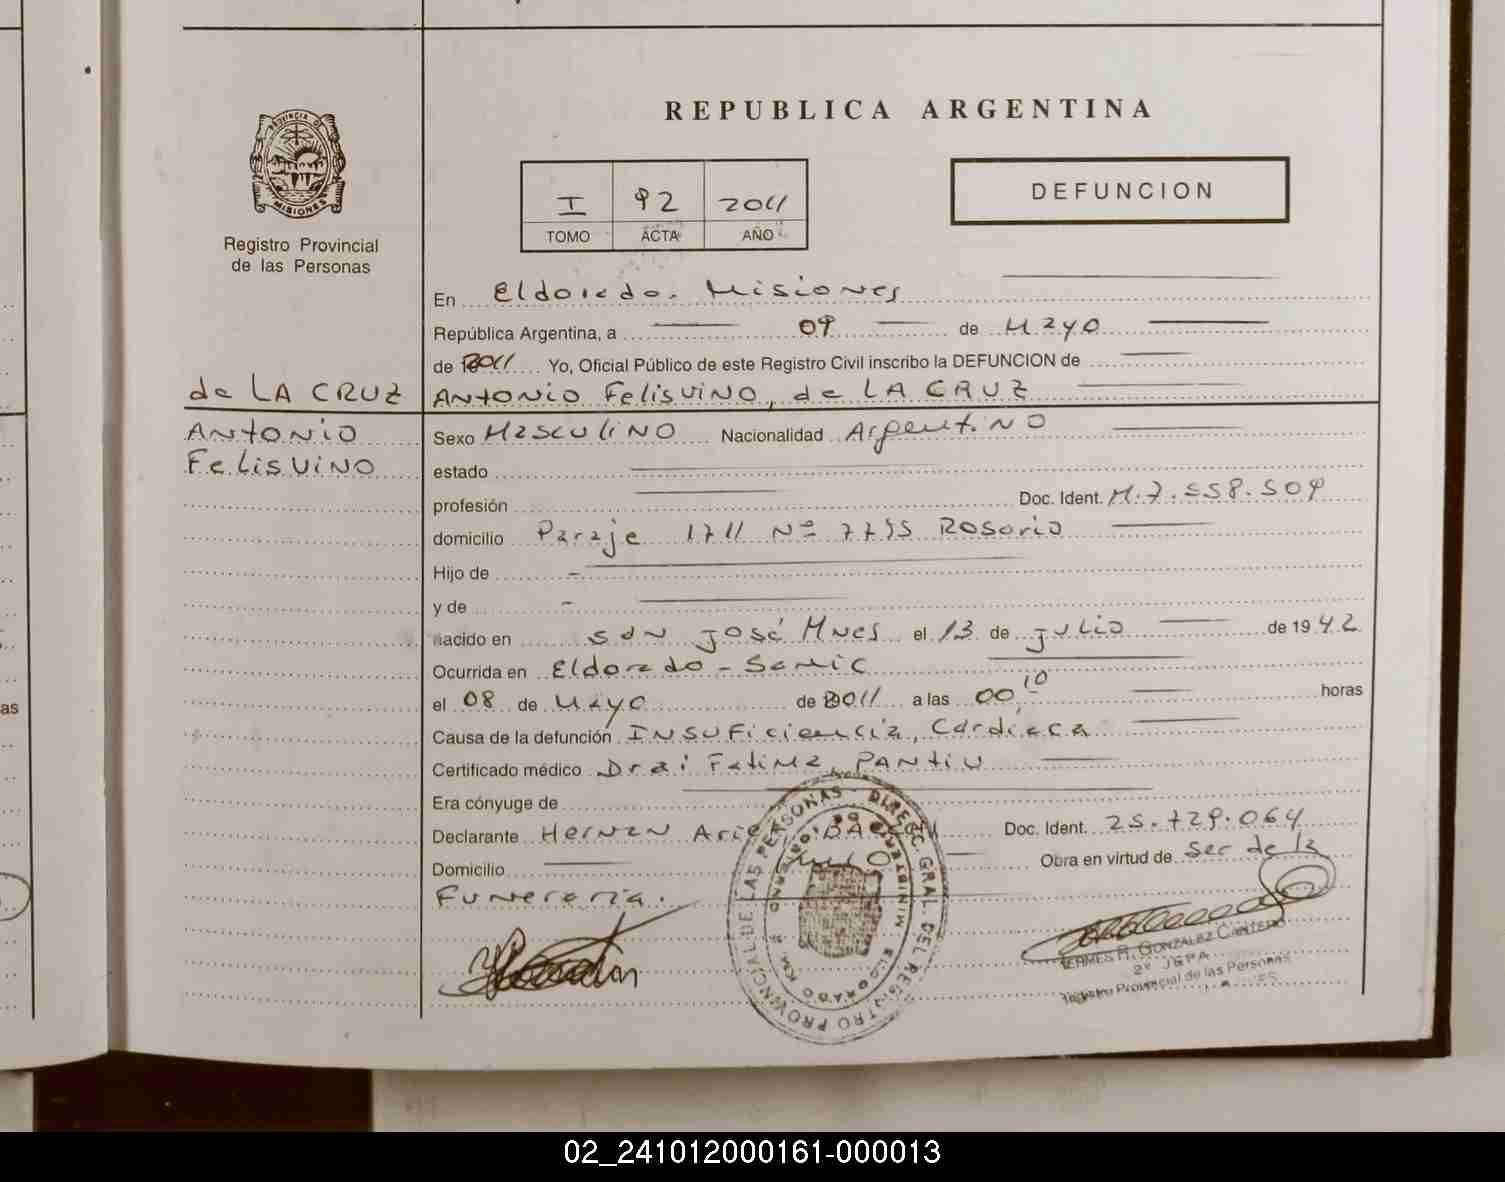 REPUBLICA ARGENTINA
PROVINCIA DE
MISIONES
Registro Provincial
de las Personas
I 92 2011
TOMO ACTA AÑO
DEFUNCION
En Eldorado. Misiones
República Argentina, a 09 de Mayo
de 2011 Yo, Oficial Público de este Registro Civil inscribo la DEFUNCION de
de LA CRUZ
ANTONIO FELISVINO, de LA CRUZ
ANTONIO
FELISVINO
Sexo Masculino Nacionalidad Argentino
estado
profesión Doc. Ident. M. 7.558.509
domicilio Paraje 1711 Nº 7755 Rosario
Hijo de -
y de -
nacido en San José Mnes el 13 de julio de 1942
Ocurrida en Eldorado - Samic
el 08 de Mayo de 2011 a las 00,10 horas
Causa de la defunción Insuficiencia, Cardiaca
Certificado médico Dra: Fatima, Pantiu
Era cónyuge de
Declarante Hernan Doc. Ident. 25.729.064
Domicilio Obra en virtud de ser de la
Funeraria.
PROVINCIAL DE LAS PERSONAS - DIRECC. GRAL. DEL REGISTRO
ELDORADO KM.
HERMES R. GONZALEZ CANTERO
2º J&PA
Registro Provincial de las Personas
as
02_241012000161-000013